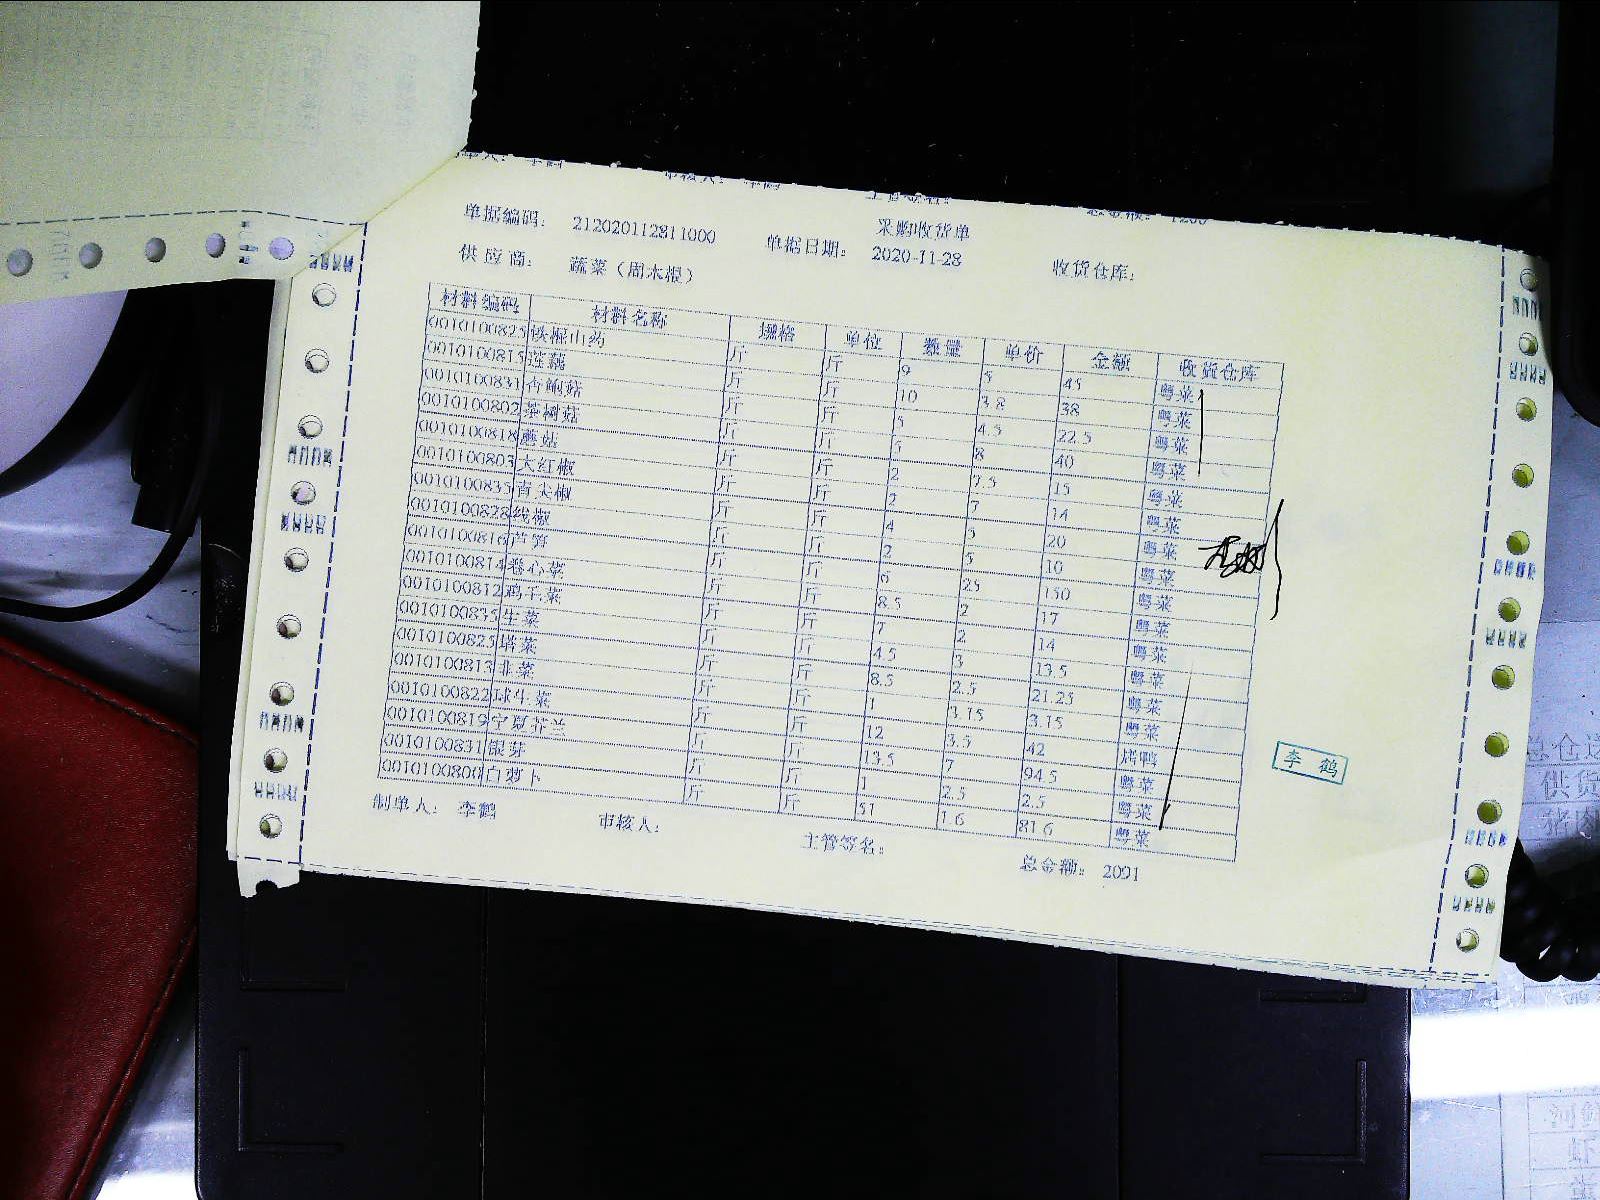 采购收货单
单据编码: 212020112811000 单据日期: 2020-11-28 收货仓库:
供应商: 蔬菜(周木根)
材料编码 材料名称 规格 单位 数量 单价 金额 收货仓库
0010100825 铁棍山药 斤 斤 9 5 45 粤菜
0010100815 莲藕 斤 斤 10 3.8 38 粤菜
0010100831 杏鲍菇 斤 斤 5 4.5 22.5 粤菜
0010100802 茶树菇 斤 斤 5 8 40 粤菜
0010100818 蘑菇 斤 斤 2 7.5 15 粤菜
0010100803 大红椒 斤 斤 2 7 14 粤菜
0010100835 青尖椒 斤 斤 4 5 20 粤菜
0010100828 线椒 斤 斤 2 5 10 粤菜
0010100816 芦笋 斤 斤 6 25 150 粤菜
0010100814 卷心菜 斤 斤 8.5 2 17 粤菜
0010100812 鸡毛菜 斤 斤 7 2 14 粤菜
0010100835 生菜 斤 斤 4.5 3 13.5 粤菜
0010100825 塔菜 斤 斤 8.5 2.5 21.25 粤菜
0010100813 韭菜 斤 斤 1 3.75 3.75 粤菜
0010100822 球生菜 斤 斤 12 3.5 42 烤鸭
0010100819 宁夏芥兰 斤 斤 13.5 7 94.5 粤菜
0010100831 银芽 斤 斤 1 2.5 2.5 粤菜
0010100800 白萝卜 斤 斤 51 1.6 81.6 粤菜
李鹤
制单人: 李鹤 审核人: 主管签名: 总金额: 2091